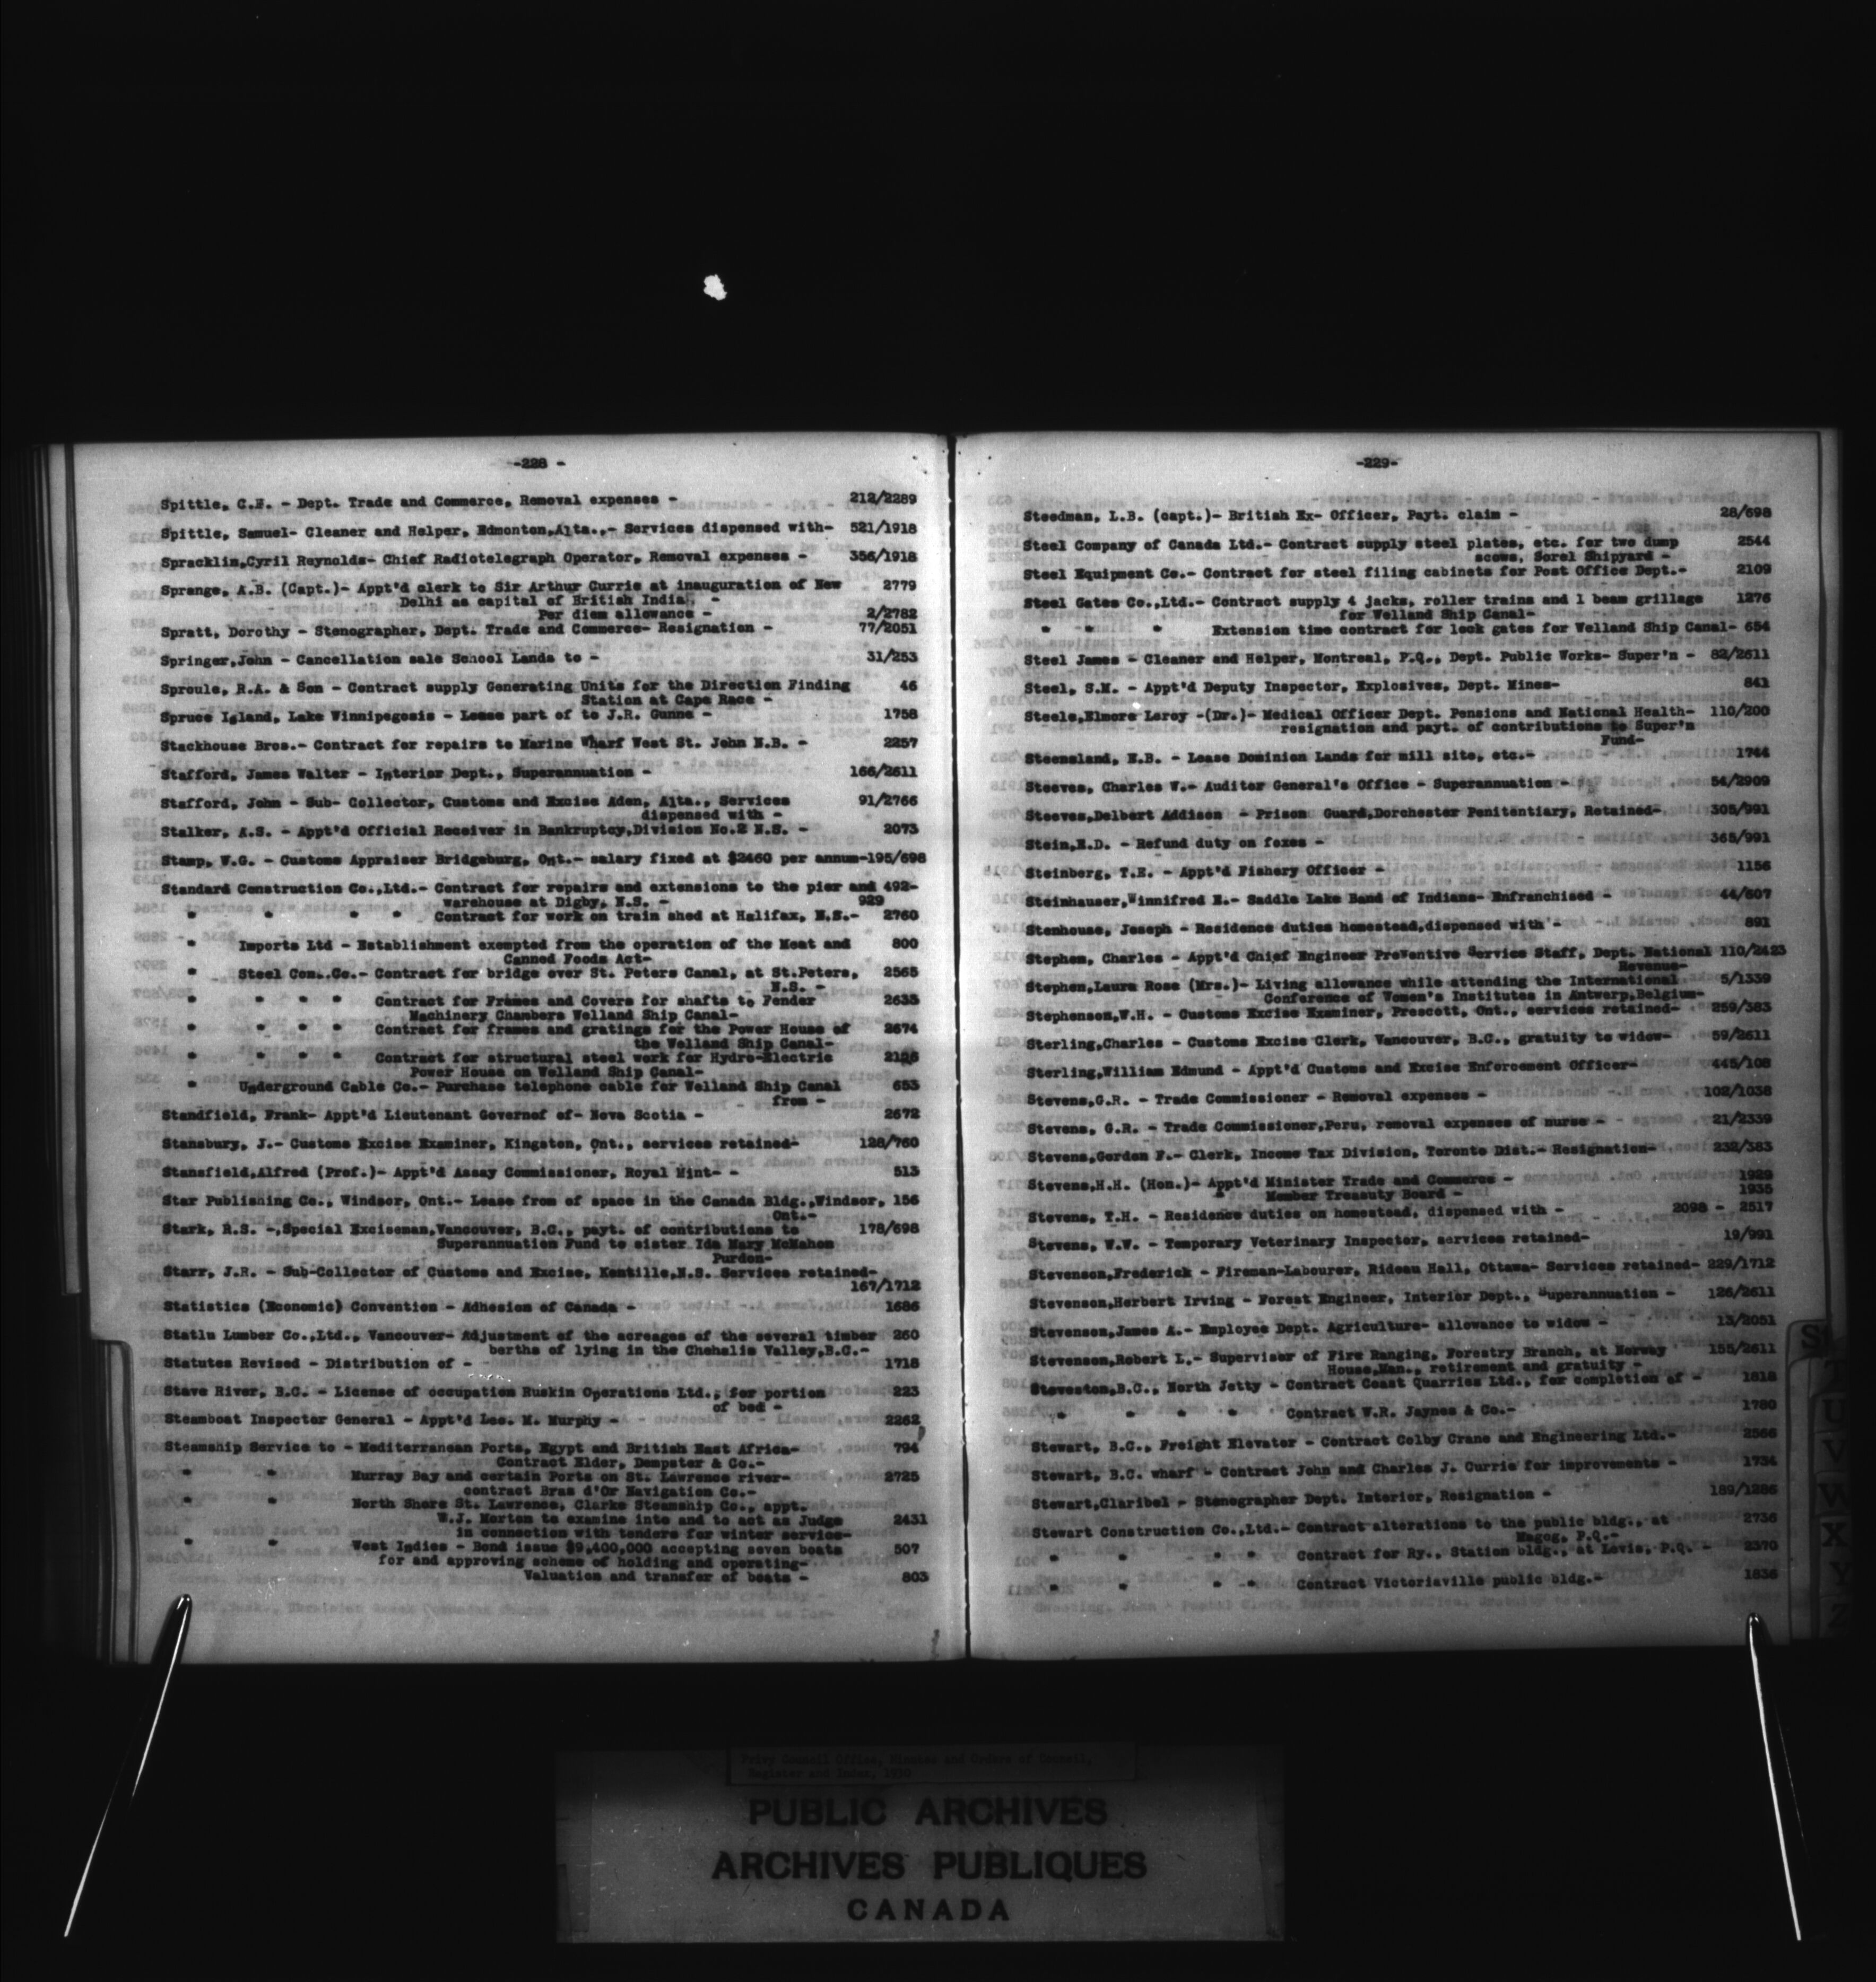 -228 -
Spittle, C.E. - Dept. Trade and Commerce, Removal expenses - 212/2289
Spittle, Samuel- Cleaner and Helper, Edmonton,Alta.,- Services dispensed with- 521/1918
Spracklin,Cyril Reynolds- Chief Radiotelegraph Operator, Removal expenses - 356/1918
Sprange, A.B. (Capt.)- Appt'd clerk to Sir Arthur Currie at inauguration of New 2779
Delhi as capital of British India, -
Per diem allowance - 2/2782
Spratt, Dorothy - Stenographer, Dept. Trade and Commerce- Resignation - 77/2051
Springer,John - Cancellation sale School Lands to - 31/253
Sproule, R.A. & Son - Contract supply Generating Units for the Direction Finding 46
Station at Cape Race -
Spruce Island, Lake Winnipegosis - Lease part of to J.R. Gunne - 1758
Stackhouse Bros.- Contract for repairs to Marine Wharf West St. John N.B. - 2257
Stafford, James Walter - Interior Dept., Superannuation - 166/2611
Stafford, John - Sub- Collector, Customs and Excise Aden, Alta., Services 91/2766
dispensed with -
Stalker, A.S. - Appt'd Official Receiver in Bankruptcy,Division No.2 N.S. - 2073
Stamp, W.G. - Customs Appraiser Bridgeburg, Ont.- salary fixed at $2460 per annum-195/698
Standard Construction Co.,Ltd.- Contract for repairs and extensions to the pier and 492-
warehouse at Digby, N.S. - 929
" " " " Contract for work on train shed at Halifax, N.S.- 2760
" Imports Ltd - Establishment exempted from the operation of the Meat and 800
Canned Foods Act-
" Steel Con..Co.- Contract for bridge over St. Peters Canal, at St.Peters, 2565
N.S. -
" " " " Contract for Frames and Covers for shafts to Fender 2633
Machinery Chambers Welland Ship Canal-
" " " " Contract for frames and gratings for the Power House of 2674
the Welland Ship Canal-
" " " " Contract for structural steel work for Hydro-Electric
Power House on Welland Ship Canal-
" Underground Cable Co.- Purchase telephone cable for Welland Ship Canal 653
from -
Standfield, Frank- Appt'd Lieutenant Governof of- Nova Scotia - 2672
Stansbury, J.- Customs Excise Examiner, Kingston, Ont., services retained- 128/760
Stansfield,Alfred (Prof.)- Appt'd Assay Commissioner, Royal Mint- - 513
Star Publishing Co., Windsor, Ont.- Lease from of space in the Canada Bldg.,Windsor, 156
Ont.-
Stark, R.S. -,Special Exciseman,Vancouver, B.C., payt. of contributions to 178/698
Superannuation Fund to sister Ida Mary McMahon
Purdon-
Starr, J.R. - Sub-Collector of Customs and Excise, Kentille,N.S. Services retained-
167/1712
Statistics (Economic) Convention - Adhesion of Canada - 1686
Statlu Lumber Co.,Ltd., Vancouver- Adjustment of the acreages of the several timber 260
berths of lying in the Chehalis Valley,B.C.-
Statutes Revised - Distribution of - 1718
Stave River, B.C. - License of occupation Ruskin Operations Ltd., for portion 223
of bed -
Steamboat Inspector General - Appt'd Lee. M. Murphy - 2262
Steamship Service to - Mediterranean Ports, Egypt and British East Africa- 794
Contract Elder, Dempster & Co.-
" " Murray Bay and certain Ports on St. Lawrence river- 2725
contract Bras d'Or Navigation Co.-
" " North Shore St. Lawrence, Clarke Steamship Co., appt.
W.J. Morton to examine into and to act as Judge 2431
in connection with tenders for winter service-
" " West Indies - Bond issue $9,400,000 accepting seven boats 507
for and approving scheme of holding and operating-
Valuation and transfer of boats - 803
-229-
Steedman, L.B. (capt.)- British Ex- Officer, Payt. claim - 28/698
Steel Company of Canada Ltd.- Contract supply steel plates, etc. for two dump 2544
scows, Sorel Shipyard -
Steel Equipment Co.- Contract for steel filing cabinets for Post Office Dept.- 2109
Steel Gates Co.,Ltd.- Contract supply 4 jacks, roller trains and 1 beam grillage 1276
for Welland Ship Canal-
" " " Extension time contract for lock gates for Welland Ship Canal- 654
Steel James - Cleaner and Helper, Montreal, P.Q., Dept. Public Works- Super'n - 82/2611
Steel, S.M. - Appt'd Deputy Inspector, Explosives, Dept. Mines- 841
Steele,Elmore Leroy -(Dr.)- Medical Officer Dept. Pensions and National Health- 110/200
resignation and payt. of contributions to Super'n
Fund-
Steensland, N.B. - Lease Dominion Lands for mill site, etc.- 1744
Steeves, Charles W.- Auditor General's Office - Superannuation - 54/2909
Steeves,Delbert Addison - Prison Guard,Dorchester Penitentiary, Retained- 305/991
Stein,E.D. - Refund duty on foxes - 365/991
Steinberg, T.E. - Appt'd Fishery Officer - 1156
Steinhauser,Winnifred E.- Saddle Lake Band of Indians- Enfranchised - 44/607
Stenhouse, Joseph - Residence duties homestead,dispensed with - 891
Stephen, Charles - Appt'd Chief Engineer PreVentive Service Staff, Dept. National 110/2423
Revenue-
Stephen,Laura Rose (Mrs.)- Living allowance while attending the International 5/1339
Conference of Women's Institutes in Antwerp,Belgium-
Stephenson,W.H. - Customs Excise Examiner, Prescott, Ont., services retained- 259/383
Sterling,Charles - Customs Excise Clerk, Vancouver, B.C., gratuity to widow- 59/2611
Sterling,William Edmund - Appt'd Customs and Excise Enforcement Officer- 445/108
Stevens,G.R. - Trade Commissioner - Removal expenses - 102/1038
Stevens, G.R. - Trade Commissioner,Peru, removal expenses of nurse - 21/2339
Stevens,Gordon F.- Clerk, Income Tax Division, Toronto Dist.- Resignation- 232/383
Stevens,H.H. (Hon.)- Appt'd Minister Trade and Commerce - 1929
Member Treasuty Board - 1935
Stevens, T.H. - Residence duties on homestead, dispensed with - 2098 - 2517
Stevens, W.W. - Temporary Veterinary Inspector, services retained- 19/991
Stevenson,Frederick - Fireman-Labourer, Rideau Hall, Ottawa- Services retained- 229/1712
Stevenson,Herbert Irving - Forest Engineer, Interior Dept., Superannuation - 126/2611
Stevenson,James A.- Employee Dept. Agriculture- allowance to widow - 13/2051
Stevenson,Robert L.- Supervisor of Fire Ranging, Forestry Branch, at Norway 155/2611
House,Man., retirement and gratuity -
Steveston,B.C., North Jetty - Contract Coast Quarries Ltd., for completion of - 1818
" " " " Contract W.R. Jaynes & Co.- 1780
Stewart, B.C., Freight Elevator - Contract Colby Crane and Engineering Ltd.- 2566
Stewart, B.C. wharf - Contract John and Charles J. Currie for improvements - 1734
Stewart,Claribel - Stenographer Dept. Interior, Resignation - 189/1286
Stewart Construction Co.,Ltd.- Contract alterations to the public bldg., at 2736
Magog, P.Q.-
" " " " Contract for Ry., Station bldg., at Levis, P.Q. - 2370
" " " " Contract Victoriaville public bldg.- 1836
S
T
U
V
W
X
Y
Z
Privy Council Office, Minutes and Orders of Council,
Register and Index, 1930
PUBLIC ARCHIVES
ARCHIVES PUBLIQUES
CANADA